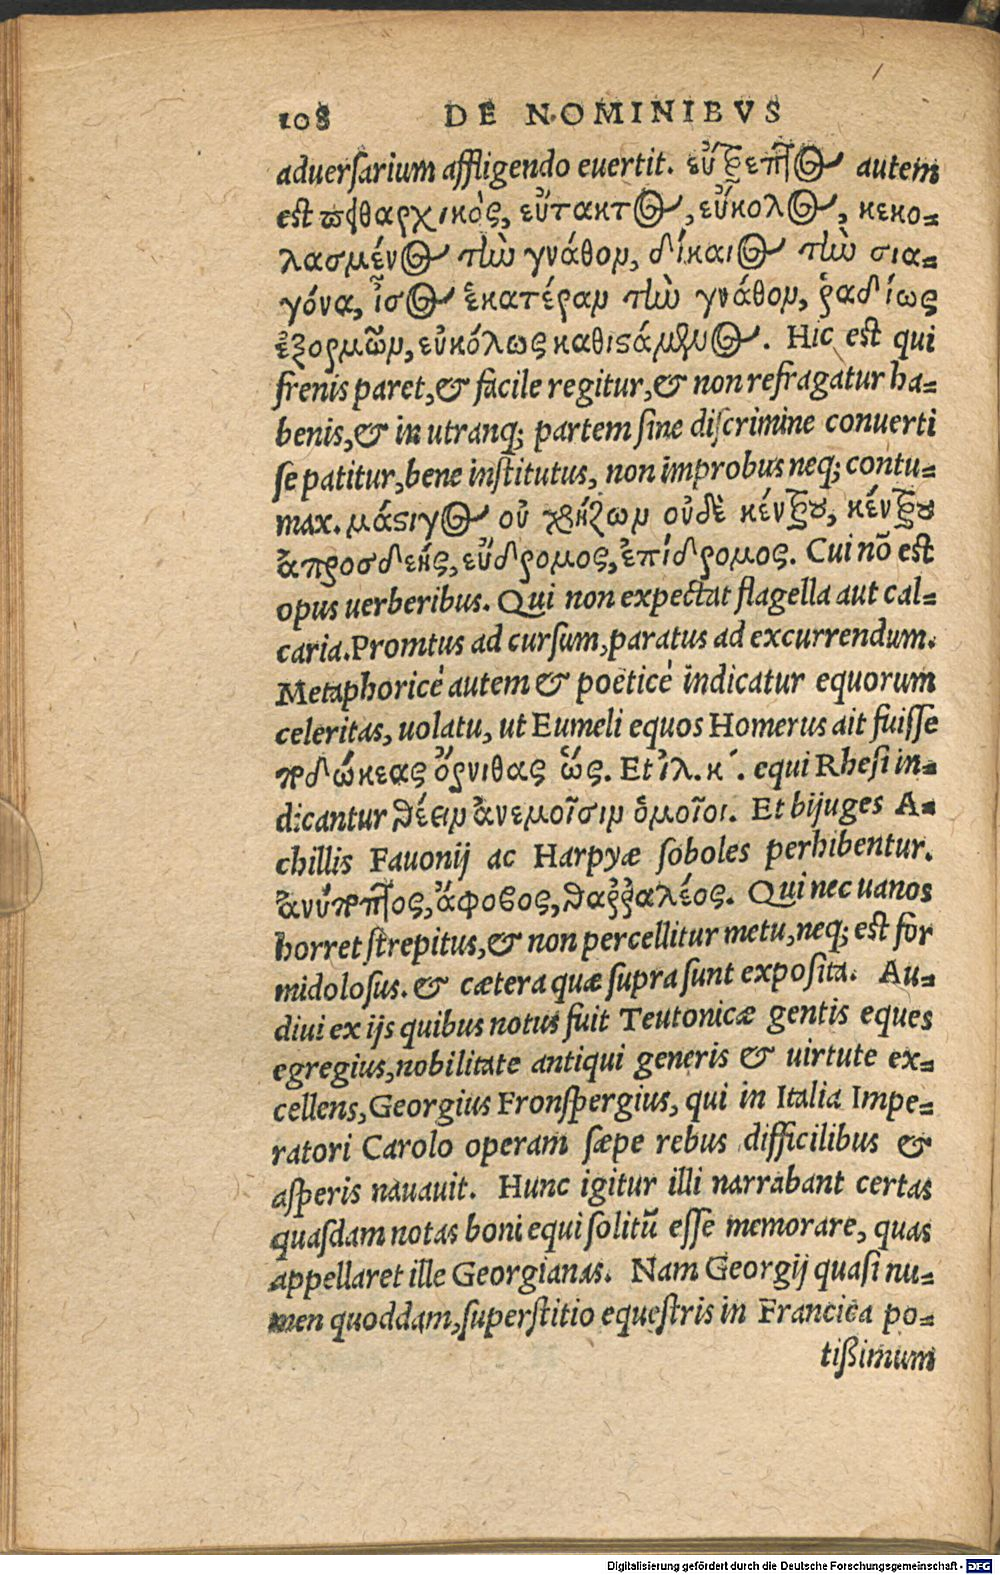 108 DE NOMINIBVS
aduerſarium affligendo euertit. εὔτρεπτος autem
est πειθαρχικὸς, εὔτακτος, εὔκολος, κεκο-
λασμένος τὴν γνάθον, δίκαιος τὴν σια-
γόνα, ἶσος ἑκατέραν τὴν γνάθον, ῥαδίως
ἐξορμῶν, εὐκόλως καθιστάμενος. Hic est qui
frenis paret, & facile regitur, & non refragatur ha-
benis, & in utranq; partem ſine diſcrimine conuerti
ſe patitur, bene inſtitutus, non improbus neq; contu-
max. μάστιγος οὐ χρῄζων οὐδὲ κέντρου, κέντρου
ἀπροσδεής, εὔδρομος, ἐπίδρομος. Cui nō est
opus uerberibus. Qui non expectat flagella aut cal-
caria. Promtus ad curſum, paratus ad excurrendum.
Metaphoricè autem & poëticè indicatur equorum
celeritas, uolatu, ut Eumeli equos Homerus ait fuiſſe
ποδώκεας ὄρνιθας ὥς. Et ἰλ. κ´. equi Rheſi in-
dicantur θέειν ἀνεμοῖσιν ὁμοῖοι. Et bijuges A-
chillis Fauonij ac Harpyæ ſoboles perhibentur.
ἀνύποπτος, ἄφοβος, θαῤῥαλέος. Qui nec uanos
horret ſtrepitus, & non percellitur metu, neq; est for
midoloſus. & cætera quæ ſupra ſunt expoſita. Au-
diui ex ijs quibus notus fuit Teutonicæ gentis eques
egregius, nobilitate antiqui generis & uirtute ex-
cellens, Georgius Fronſpergius, qui in Italia Impe-
ratori Carolo operam ſæpe rebus difficilibus &
aſperis nauauit. Hunc igitur illi narrabant certas
quaſdam notas boni equi ſolitū eſſe memorare, quas
appellaret ille Georgianas. Nam Georgij quaſi nu-
men quoddam, ſuperſtitio equeſtris in Francica po-
tißimum
Digitalisierung gefördert durch die Deutsche Forschungsgemeinschaft - DFG